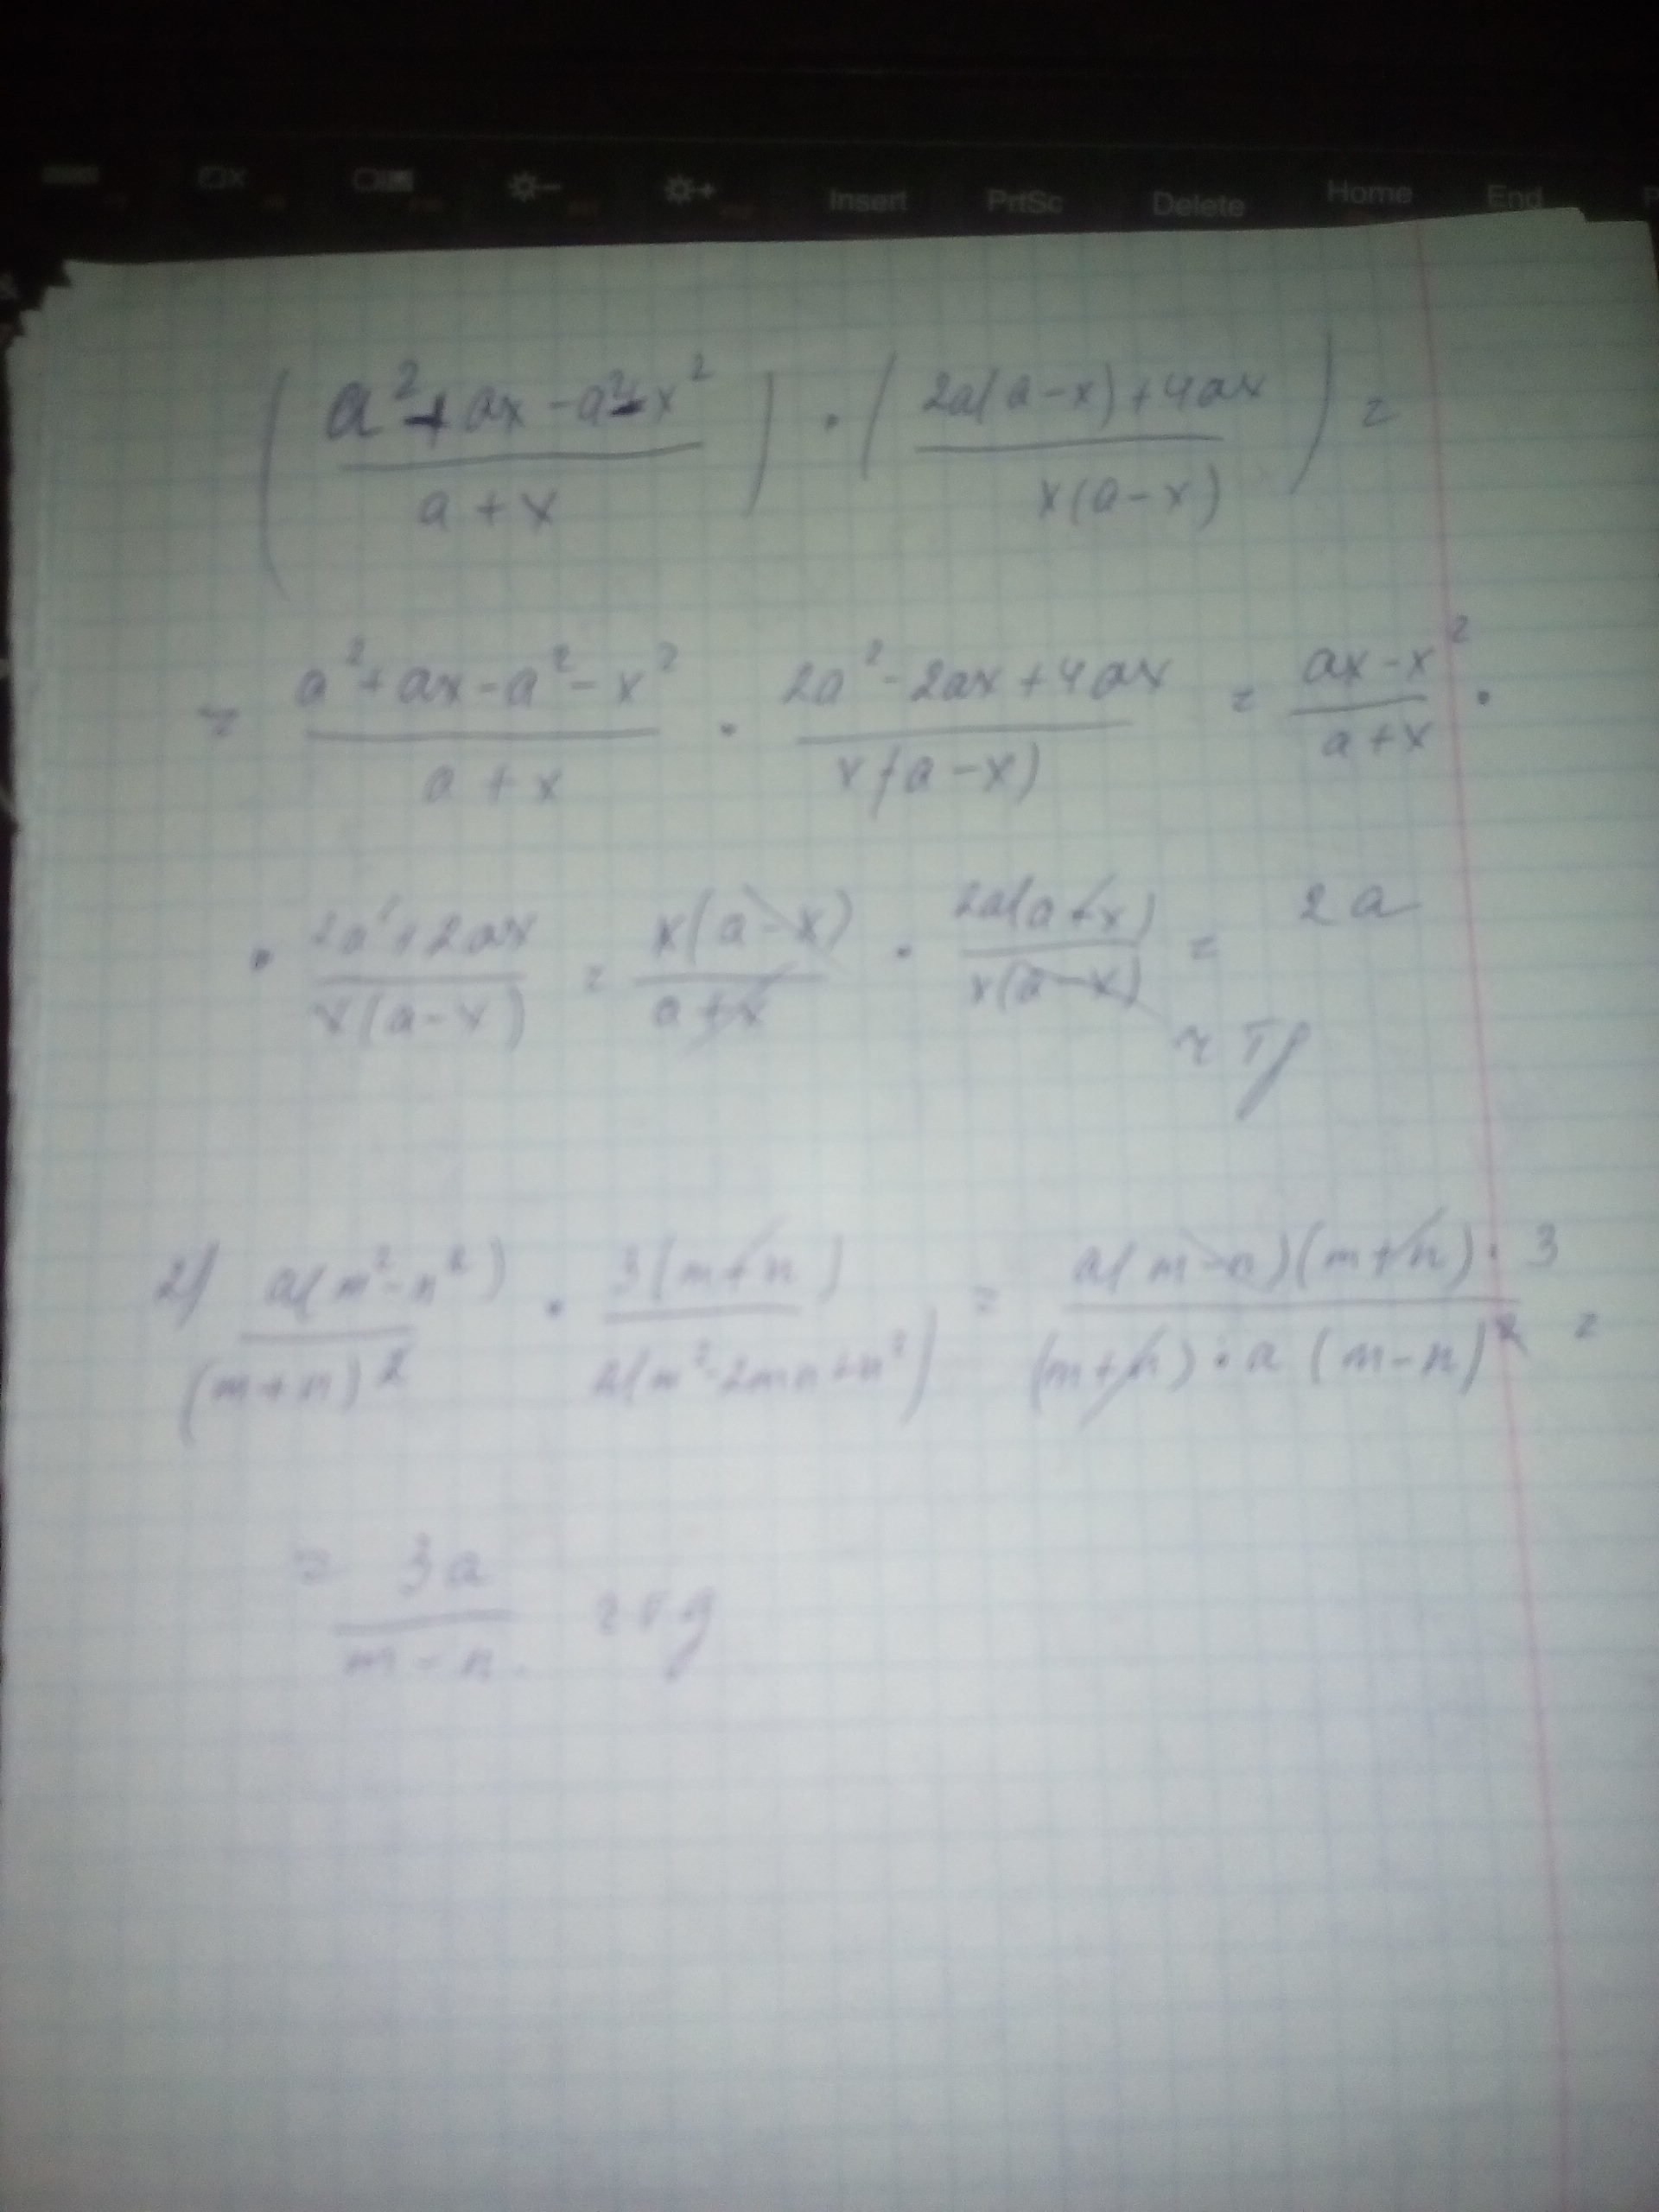 Insert PrtSc Delete Home End
( (a²+ax-a²-x²)/(a+x) ) · ( (2a(a-x)+4ax)/(x(a-x)) ) =
= (a²+ax-a²-x²)/(a+x) · (2a²-2ax+4ax)/(x(a-x)) = (ax-x²)/(a+x) ·
· (2a²+2ax)/(x(a-x)) = x(a-x)/(a+x) · 2a(a+x)/(x(a-x)) = 2a
2) a(m²-n²)/(m+n)² · 3(m+n)/(2(m²-2mn+n²)) = a(m-n)(m+n)·3/((m+n)·a(m-n)²) =
= 3a/(m-n)